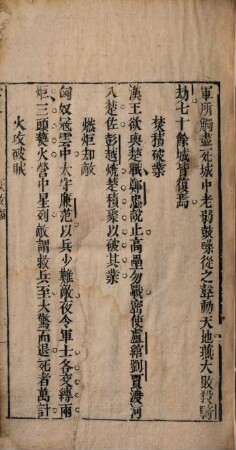 軍所觸盡死城中老弱鼓噪從之聲動天地燕大敗殺騎
劫七十餘城皆復焉
焚積破業
漢王欲與楚戰鄭忠說止高壘勿戰密使盧綰劉賈渡河
入楚佐彭越燒楚積聚以破其業
燃炬却敵
匈奴寇雲中太守廉范以兵少難敵夜令軍士各交縛兩
炬三頭爇火營中星列敵謂救兵至大驚而退死者萬計
火攻破賊